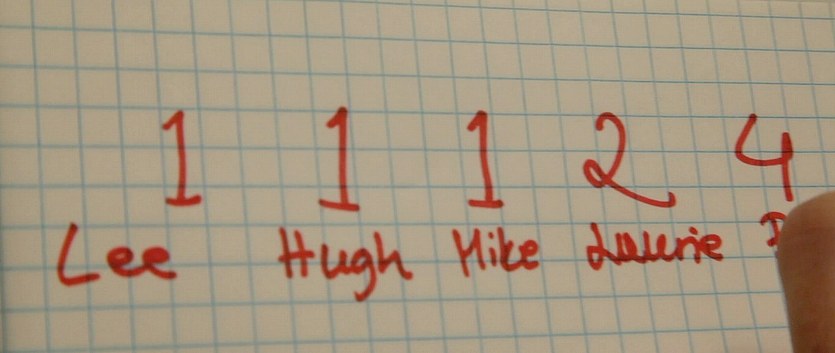 1 1 1 2 4
Lee Hugh Mike Laurie